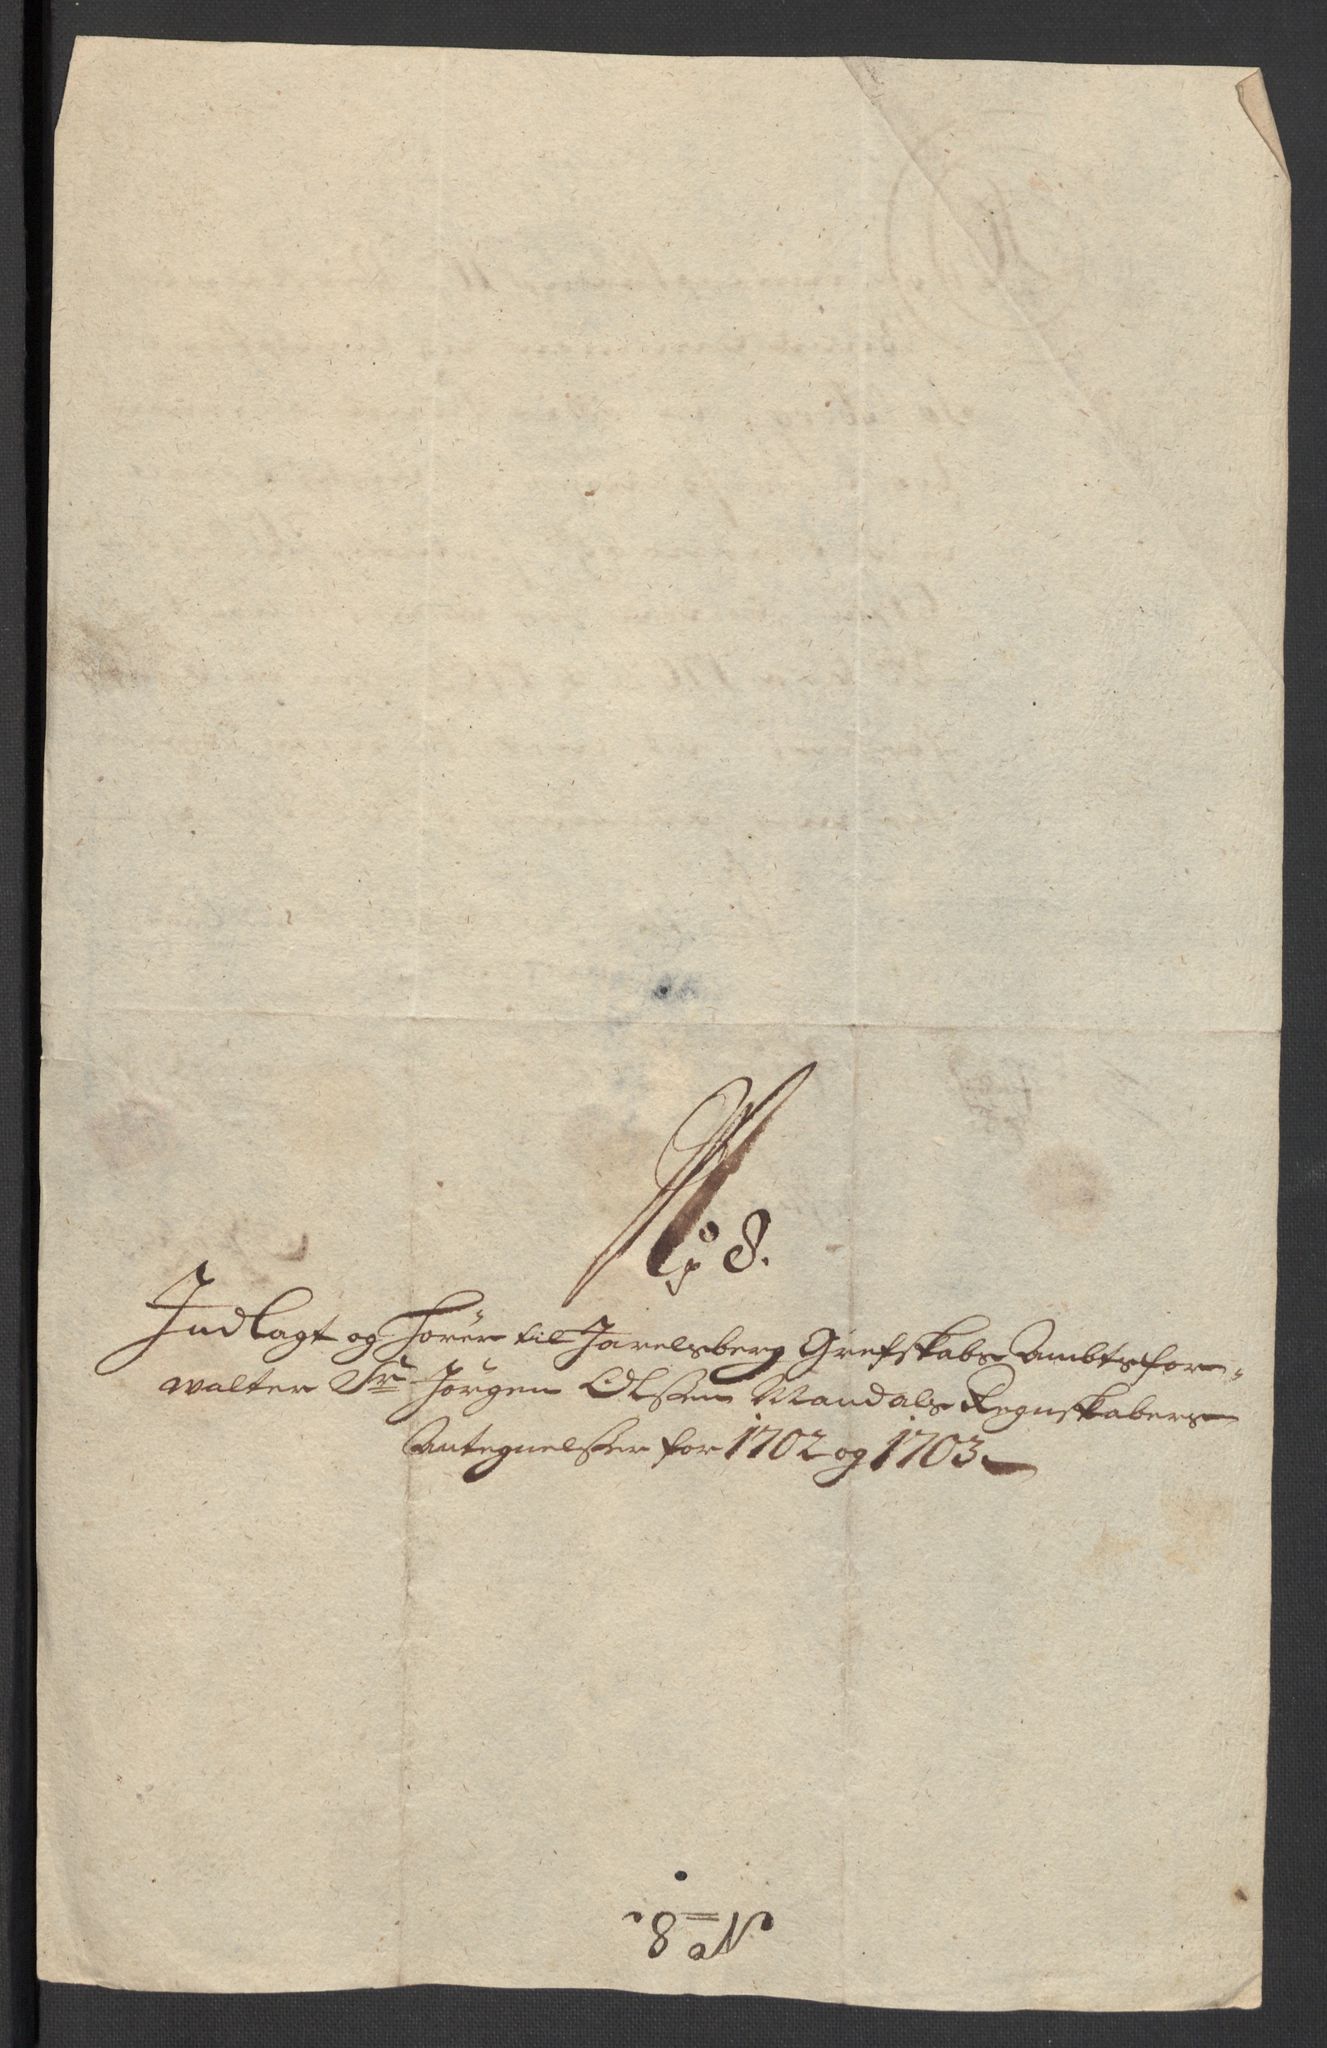 No 8.
Indlagt og hörer til Jarelsberg Grefskabs Ambtsfor=
walter Sr Jörgen Olsen Mandals Regnskabers
Antegnelser for 1702 og 1703.
No 8.